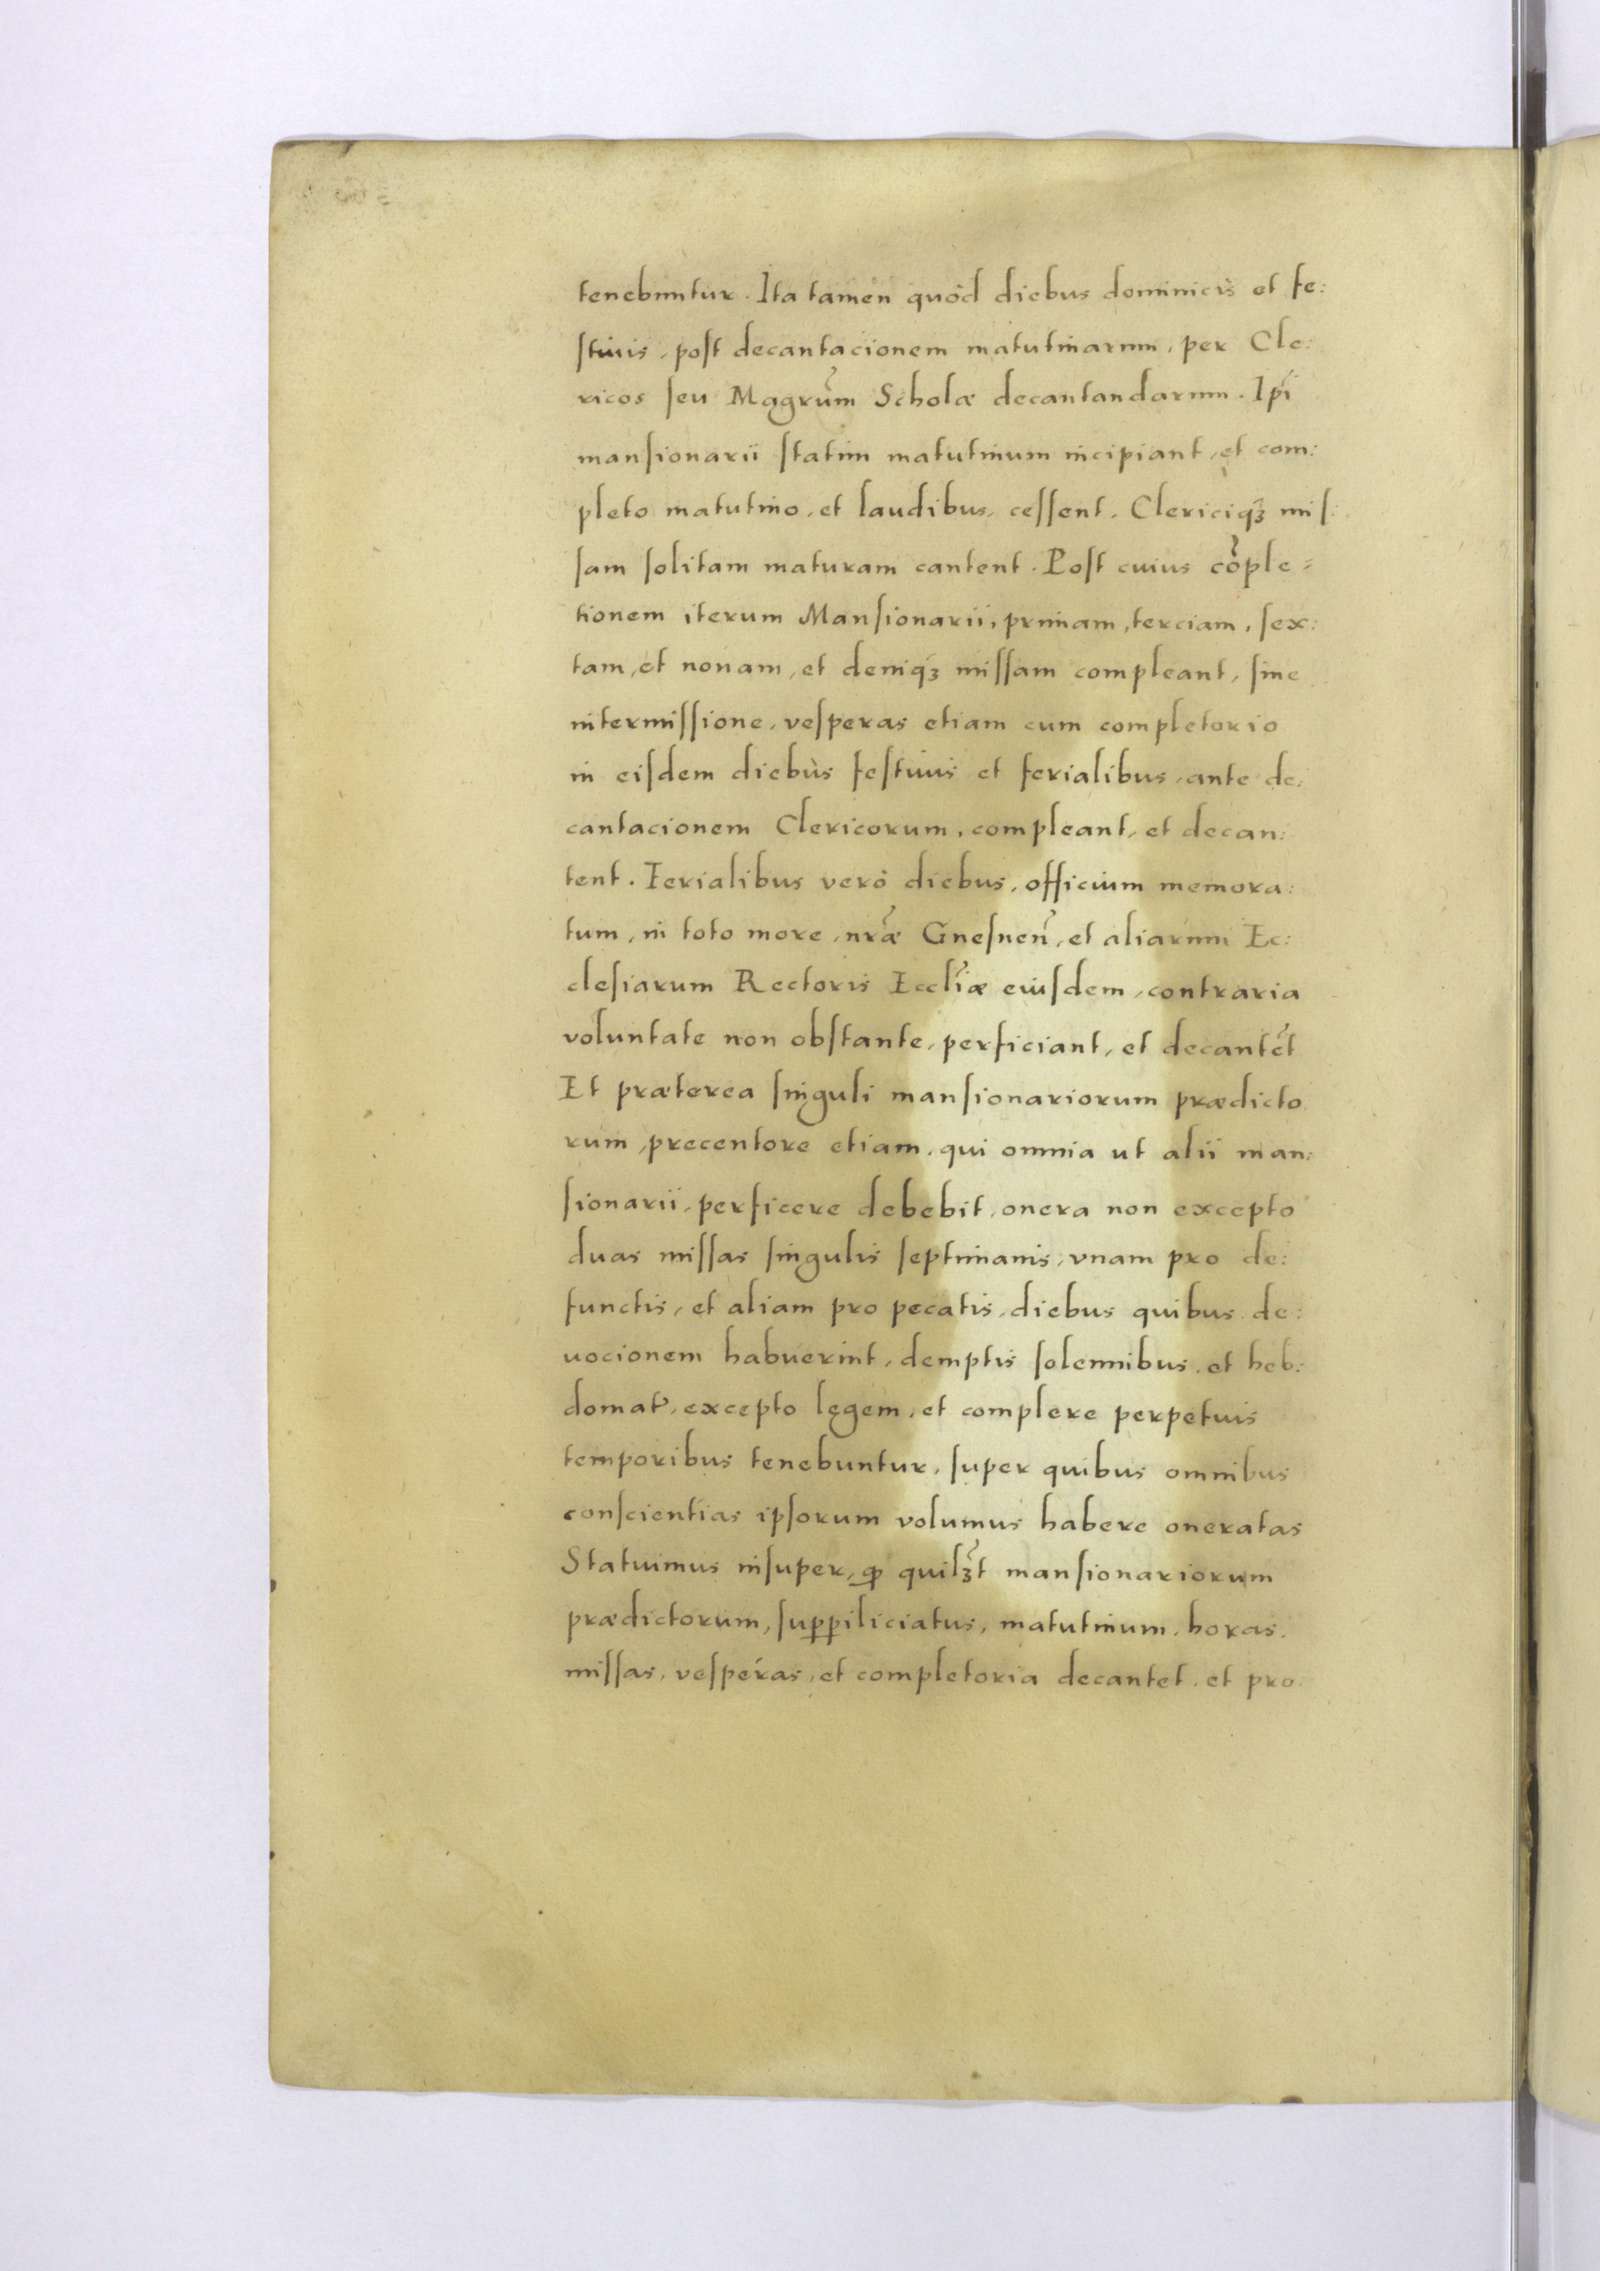 tenebuntur. Ita tamen quòd diebus dominicis et fe:
ſtiuis, poſt decantacionem matutinarum, per Cle:
ricos ſeu Magrum̃ Scholæ decantandarum. Ip̃i
manſionarii ſtatim matutinum incipiant, et com:
pleto matutino, et laudibus, ceſſent. Clericiqꝫ miſ:
ſam ſolitam maturam cantent. Poſt cuius cõple:
tionem iterum Manſionarii, primam, terciam, ſex:
tam, et nonam, et deniqꝫ miſſam compleant, ſine
intermiſſione, veſperas etiam cum completorio
in eiſdem diebus feſtiuis et ferialibus, ante de:
cantacionem Clericorum, compleant, et decan:
tent. Ferialibus verò diebus, officium memora:
tum, in toto more, nr̃æ Gneſneñ, et aliarum Ec:
cleſiarum Rectoris Eccl̃iæ eiuſdem, contraria
voluntate non obſtante, perficiant, et decantẽt
Et præterea ſinguli manſionariorum prædicto
rum, precentore etiam, qui omnia ut alii man:
ſionarii, perficere debebit, onera non excepto
duas miſſas ſingulis ſeptimanis, vnam pro de:
functis, et aliam pro pecatis, diebus quibus de:
uocionem habuerint, demptis ſolennibus, et heb:
domat̃, excepto lęgem, et complere perpetuis
temporibus tenebuntur, ſuper quibus omnibus
conſcientias ipſorum volumus habere oneratas
Statuimus inſuper, ꝙ quilꝫt manſionariorum
prædictorum, ſuꝑpiliciatus, matutinum, horas,
miſſas, veſperas, et completoria decantet, et pro: